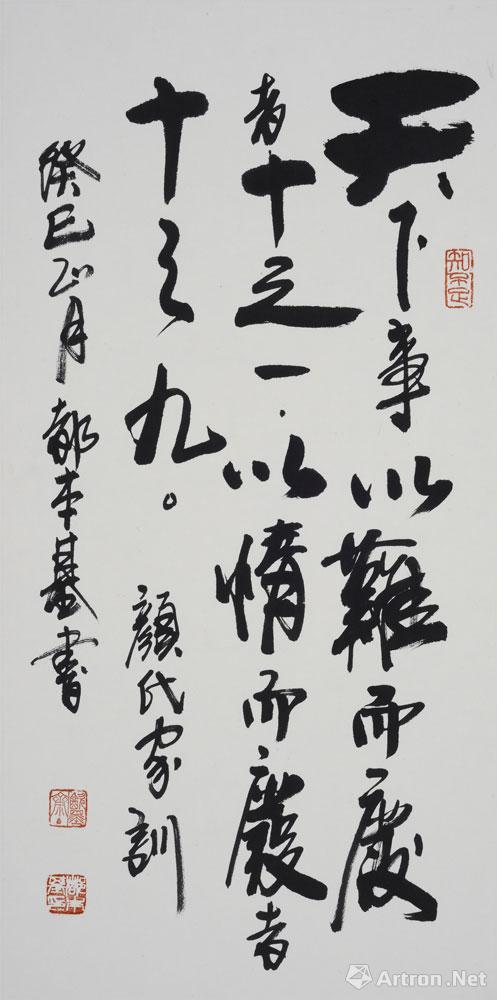 天下事以難而廢
者十之一.以惰而廢者
十之九。
顏氏家訓
癸巳正月都本基書
知不足
Artron.Net